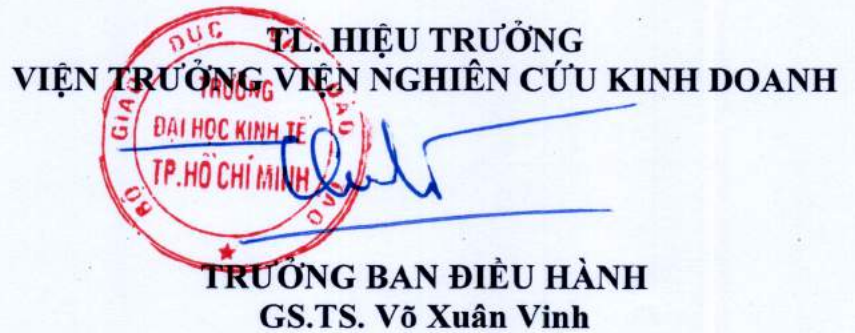 TL. HIỆU TRƯỞNG
VIỆN TRƯỞNG VIỆN NGHIÊN CỨU KINH DOANH
BỘ GIÁO DỤC VÀ ĐÀO TẠO
TRƯỜNG
ĐẠI HỌC KINH TẾ
TP.HỒ CHÍ MINH
TRƯỞNG BAN ĐIỀU HÀNH
GS.TS. Võ Xuân Vinh